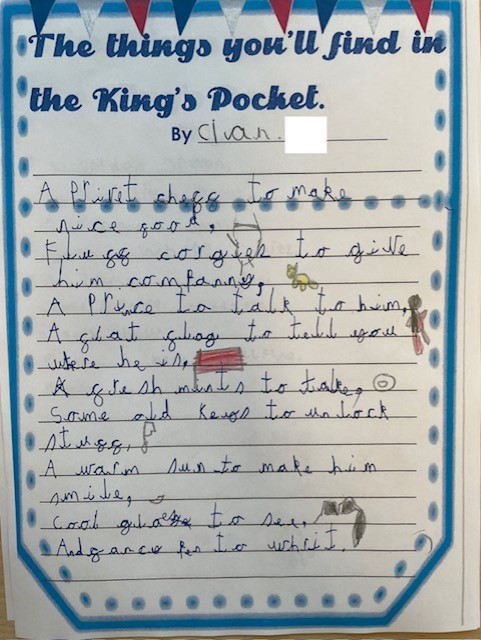 The things you'll find in
the King's Pocket.
By Cian.
A Privet cheff to make
nice food,
Fluff corgies to give
him companny,
A Prince to talk to him,
A flat flag to tell you
where he is,
A fresh mints to take,
Some old keys to unlock
stuff,
A warm sun to make him
smile,
Cool to see,
And fance Pen to whrit.